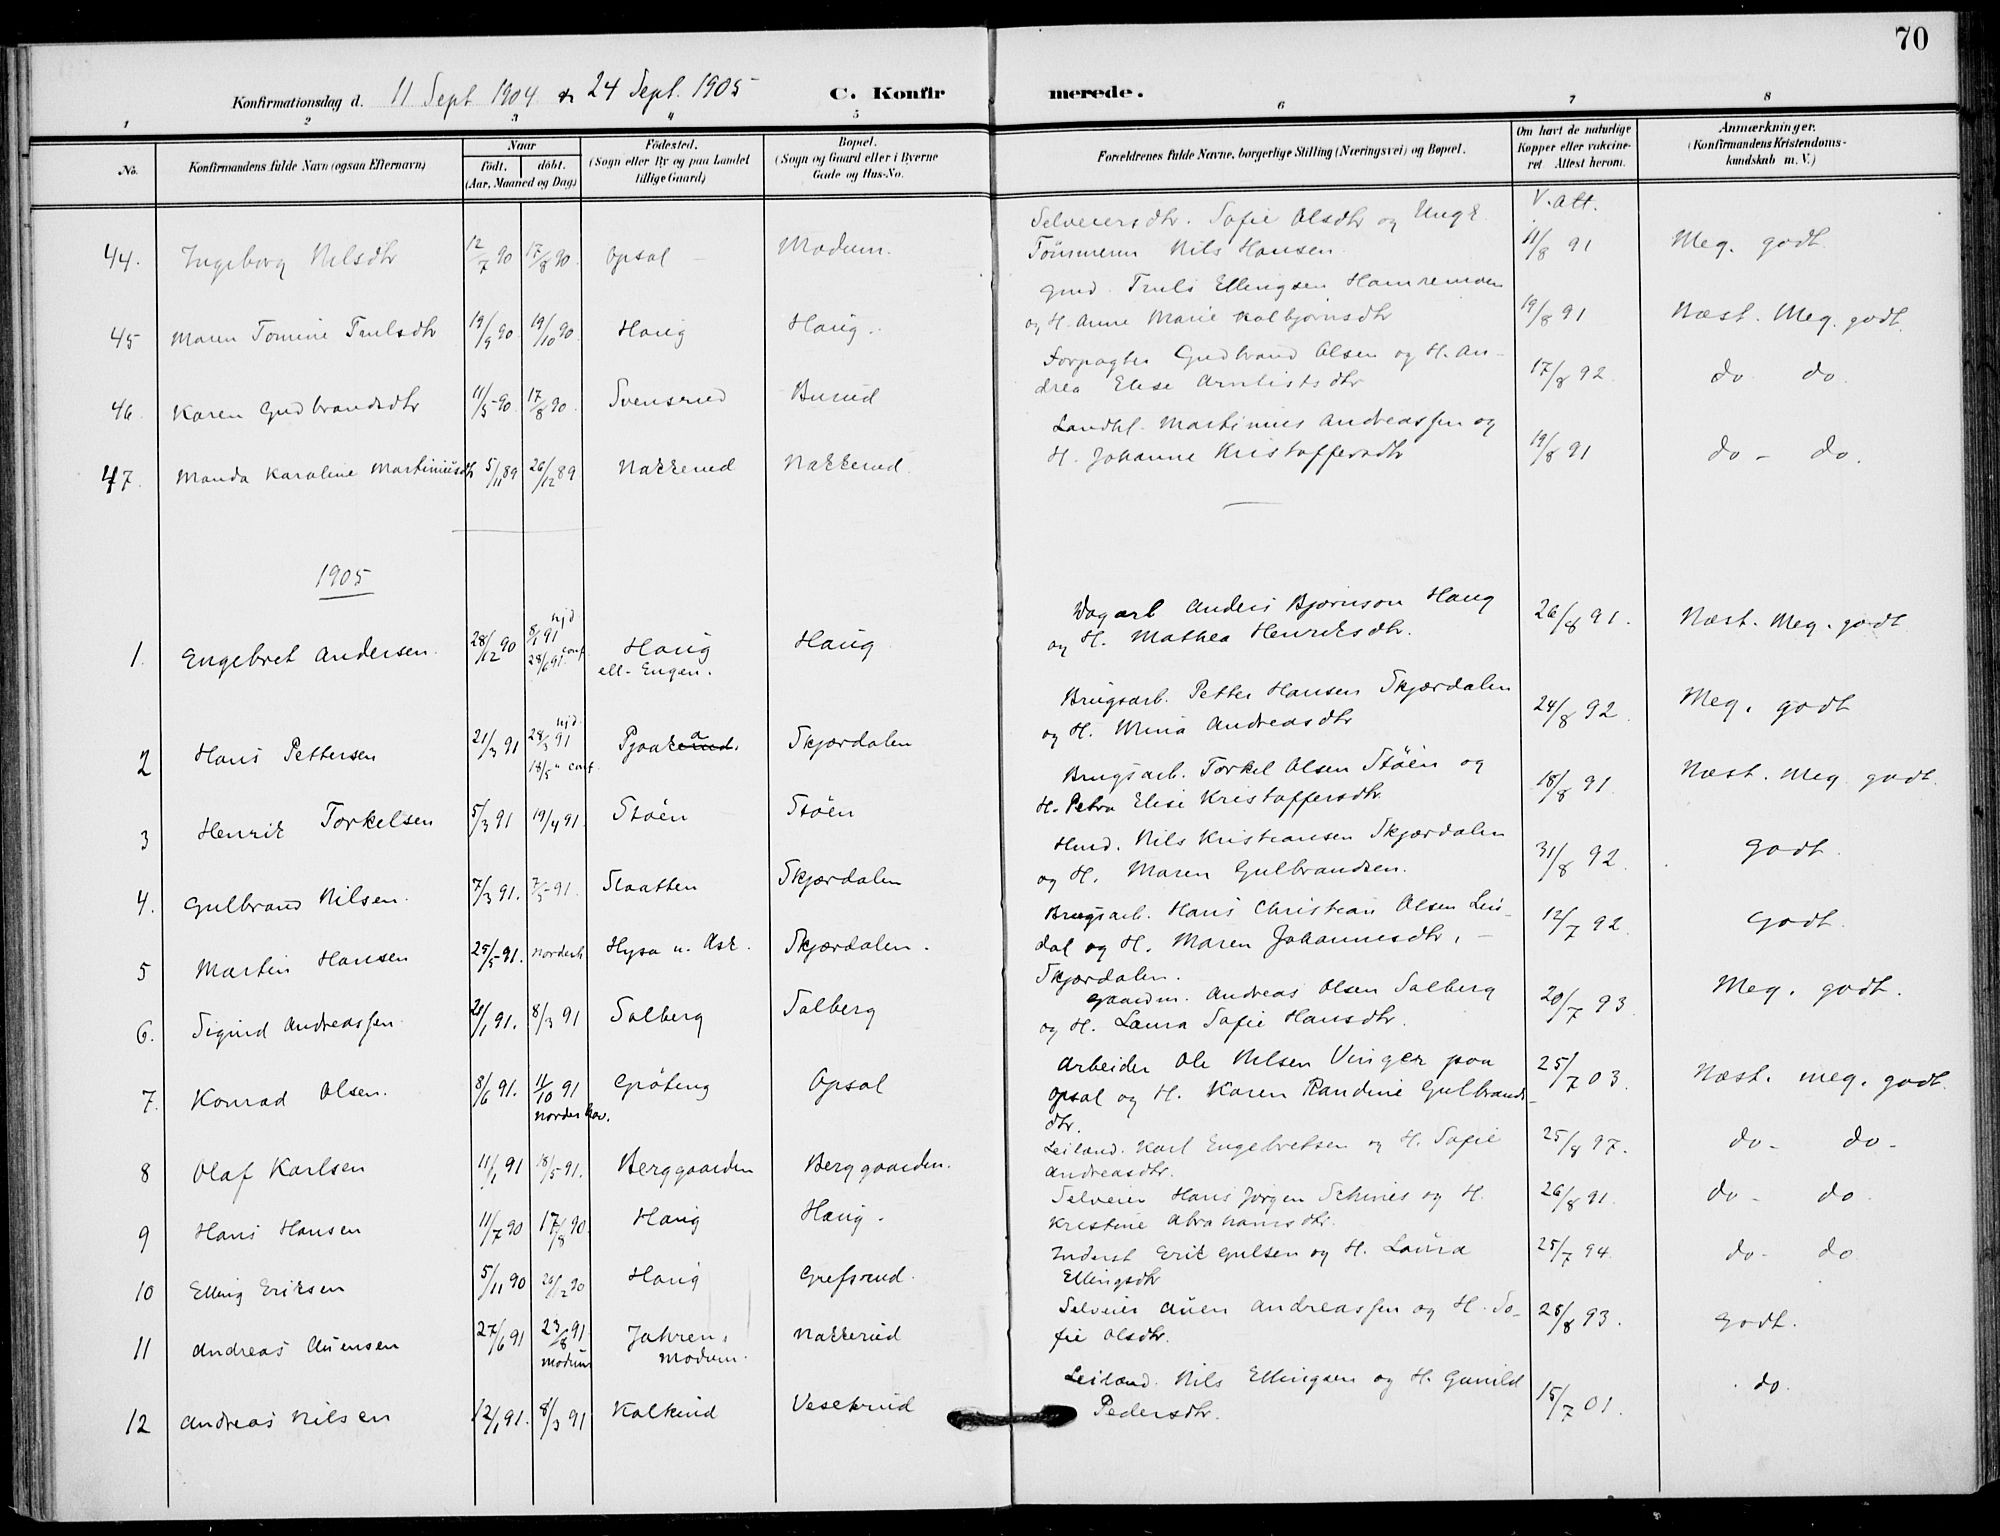 70
Konfirmationsdag d. 11 Sept 1904 & 24 Sept. 1905 C. Konfirmerede.
1 2 3 4 5 6 7 8
No. Konfirmandens fulde Navn (ogsaa Efternavn) Naar Født. døbt. (Aar, Maaned og Dag) Fødested. (Sogn eller By og paa Landet tillige Gaard) Bopæl. (Sogn og Gaard eller i Byerne Gade og Hus-No. Forældrenes fulde Navne, borgerlige Stilling (Næringsvei) og Bopæl. Om havt de naturlige Kopper eller vakcineret Attest herom. Anmærkninger. (Konfirmandens Kristendomskundskab m. V.)
V. att.
44. Ingeborg Nilsdtr 12/7 90 17/8 90 Opsal Modum. Selveiersdtr. Sofie Olsdtr og Ungk. 11/8 91 Meg. godt.
Tømmerm Nils Hansen.
45 Maren Tomine Trulsdtr 19/9 90 19/10 90 Haug Haug. Gmd. Truls Ellingsen Hamremoen 19/8 91 Næst. Meg. godt.
og H. Anne Marie Kolbjørnsdtr
46. Karen Gudbrandsdtr 11/5 90. 17/8 90. Svensrud Burud Forpagter Gudbrand Olsen og H. An- 17/8 92. do do.
drea Elise Arnlistsdtr
47. Manda Karoline Martiniusdtr 5/11 89 26/12 89 Nakkerud Nakkerud Landhl. Martinius Andreassen og 19/8 91 do - do.
H. Johanne Kristoffersdtr
1905
1. Engebret Andersen. 28/12 90 8/1 91 hjd 28/6 91 conf. Haug ell. Engen. Haug Vogarb Anders Bjørnson Haug 26/8 91. Næst. Meg. godt
og H. Mathea Henriksdtr.
2 Hans Pettersen 21/3 91 28/3 91 hjd. 18/5 " conf. Skjærdalen Brugsarb. Petter Hansen Skjærdalen 24/8 92. Meg. godt
og H. Mina Andreasdtr
3 Henrik Torkelsen 5/3 91 19/4 91. Støen Støen Brugsarb. Torkel Olsen Støen og 18/8 91. Næst. Meg. godt.
H. Petra Elise Kristoffersdtr.
4. Gulbrand Nilsen. 7/3 91. 7/5 91. Slaatten Skjærdalen Husd. Nils Kristiansen Skjærdalen 31/8 92. Godt.
og H. Maren Gulbrandsen.
5 Martin Hansen 25/5 91. Norderh Hysa u. Ask. Skjærdalen. Brugsarb. Hans Christian Olsen Leis- 12/7 92. Godt.
dal og H. Maren Johannesdtr, -
Skjærdalen.
6. Sigurd Andreassen 20/1 91. 8/3 91 Solberg Solberg Gaardm. Andreas Olsen Solberg 20/7 93 Meg. godt.
og H. Laura Sofie Hansdtr.
7. Konrad Olsen. 8/6 91. 11/10 91 Norderhov. Grøteng Opsal Arbeider Ole Nilsen Vinger paa 25/7 03. Næst. meg. godt.
Opsal og H. Karen Randine Gulbrands-
dtr.
8 Olaf Karlsen 11/1 91 18/5 91. Berggaarden Berggaarden. Leiland. Karl Engebretsen og H. Sofie 25/8 97. do - do -
Andreasdtr.
9 Hans Hansen 11/7 90 17/8 90. Haug Haug. Selveier Hans Jørgen og H. 26/8 91. do - do.
Kristine Abrahamsdtr.
10 Elling Eriksen 5/11 90 Haug Grefsrud. Inderst Erik Gulsen og H. Laura 25/7 94. do - do
Ellingsdtr
11 Andreas Auensen 27/6 91 23/8 91. Modum Jahren, Modum. Nakkerud Selveier Auen Andreassen og H. So- 28/8 93. Godt.
fie Olsdtr.
12 Andreas Nilsen 12/1 91. 8/3 91 Kalkrud Vesetrud Leiland. Nils Ellingsen og H. Gunild 15/7 01. do.
Pedersdtr.